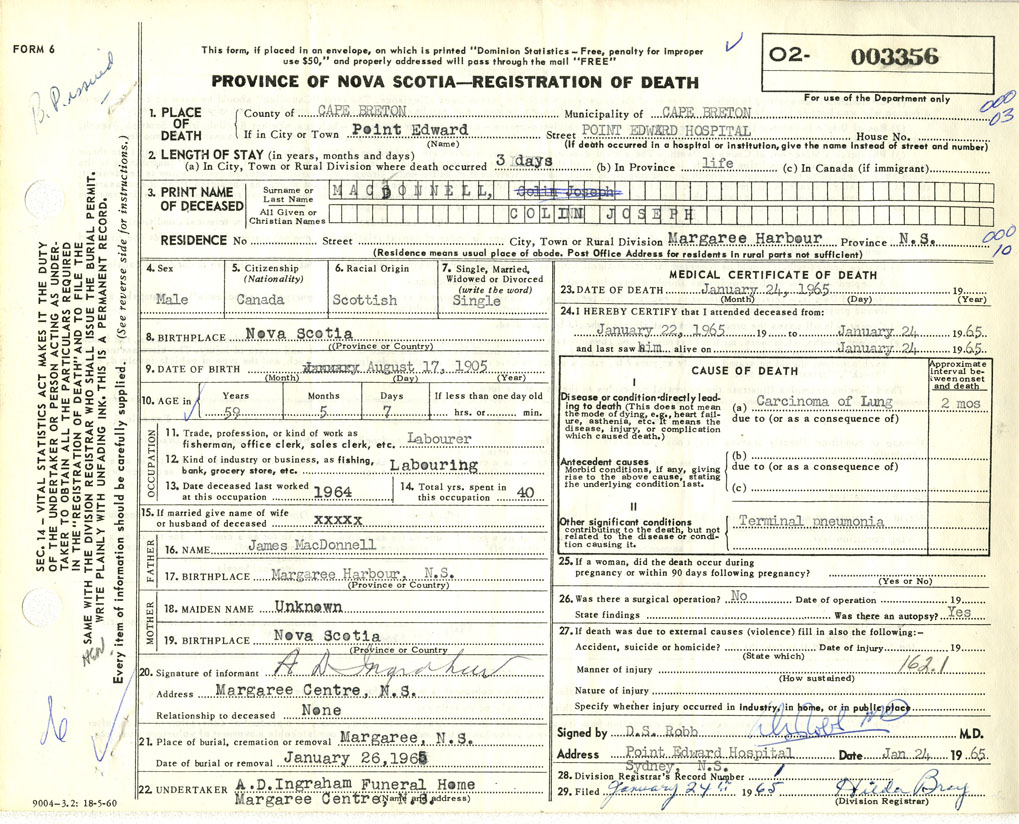 FORM 6
B. P. issued
This form, if placed in an envelope, on which is printed "Dominion Statistics – Free, penalty for improper
use $50," and properly addressed will pass through the mail "FREE"
PROVINCE OF NOVA SCOTIA—REGISTRATION OF DEATH
O2- 003356
For use of the Department only
000
03
1. PLACE OF DEATH
County of CAPE BRETON Municipality of CAPE BRETON
If in City or Town Point Edward Street POINT EDWARD HOSPITAL House No.
(Name) (If death occurred in a hospital or institution, give the name instead of street and number)
2. LENGTH OF STAY (in years, months and days)
(a) In City, Town or Rural Division where death occurred 3 days (b) In Province life (c) In Canada (if immigrant)
3. PRINT NAME OF DECEASED
Surname or Last Name MACDONNELL, Colin Joseph
All Given or Christian Names COLIN JOSEPH
RESIDENCE No Street City, Town or Rural Division Margaree Harbour Province N.S.
(Residence means usual place of abode. Post Office Address for residents in rural parts not sufficient)
000
10
SEC. 14 – VITAL STATISTICS ACT MAKES IT THE DUTY
OF THE UNDERTAKER OR PERSON ACTING AS UNDER-
TAKER TO OBTAIN ALL THE PARTICULARS REQUIRED
IN THE "REGISTRATION OF DEATH" AND TO FILE THE
SAME WITH THE DIVISION REGISTRAR WHO SHALL ISSUE THE BURIAL PERMIT.
WRITE PLAINLY WITH UNFADING INK. THIS IS A PERMANENT RECORD.
Every item of information should be carefully supplied. (See reverse side for instructions.)
4. Sex
Male
5. Citizenship
(Nationality)
Canada
6. Racial Origin
Scottish
7. Single, Married,
Widowed or Divorced
(write the word)
Single
8. BIRTHPLACE Nova Scotia
(Province or Country)
9. DATE OF BIRTH August 17, 1905
(Month) (Day) (Year)
10. AGE in Years Months Days If less than one day old
59 5 7 hrs. or min.
OCCUPATION
11. Trade, profession, or kind of work as
fisherman, office clerk, sales clerk, etc. Labourer
12. Kind of industry or business, as fishing,
bank, grocery store, etc. Labouring
13. Date deceased last worked
at this occupation 1964
14. Total yrs. spent in
this occupation 40
15. If married give name of wife
or husband of deceased xxxxx
FATHER
16. NAME James MacDonnell
17. BIRTHPLACE Margaree Harbour, N.S.
(Province or Country)
MOTHER
18. MAIDEN NAME Unknown
19. BIRTHPLACE Nova Scotia
(Province or Country)
20. Signature of informant A D Ingraham
Address Margaree Centre, N.S.
Relationship to deceased None
21. Place of burial, cremation or removal Margaree, N.S.
Date of burial or removal January 26, 1965
22. UNDERTAKER A.D.Ingraham Funeral Home
Margaree Centre, N.S.
(Name and address)
9004–3.2: 18-5-60
MEDICAL CERTIFICATE OF DEATH
23. DATE OF DEATH January 24, 1965
(Month) (Day) (Year)
24. I HEREBY CERTIFY that I attended deceased from:
January 22, 1965 19 to January 24 1965.
and last saw him alive on January 24 1965.
CAUSE OF DEATH
Approximate interval between onset and death
I
Disease or condition directly lead-
ing to death (This does not mean
the mode of dying, e.g., heart fail-
ure, asthenia, etc. It means the
disease, injury, or complication
which caused death.)
(a) Carcinoma of Lung 2 mos
due to (or as a consequence of)
Antecedent causes
Morbid conditions, if any, giving
rise to the above cause, stating
the underlying condition last.
(b)
due to (or as a consequence of)
(c)
II
Other significant conditions
contributing to the death, but not
related to the disease or condi-
tion causing it.
Terminal pneumonia
25. If a woman, did the death occur during
pregnancy or within 90 days following pregnancy?
(Yes or No)
26. Was there a surgical operation? No Date of operation 19
State findings Was there an autopsy? Yes
27. If death was due to external causes (violence) fill in also the following:–
Accident, suicide or homicide? Date of injury 19
(State which)
Manner of injury 162.1
(How sustained)
Nature of injury
Specify whether injury occurred in industry, in home, or in public place
Signed by D.S. Robb DS Robb MD M.D.
Address Point Edward Hospital Date Jan 24 1965.
Sydney, N.S.
28. Division Registrar's Record Number 1
29. Filed January 24th 1965 Hilda Bray
(Division Registrar)